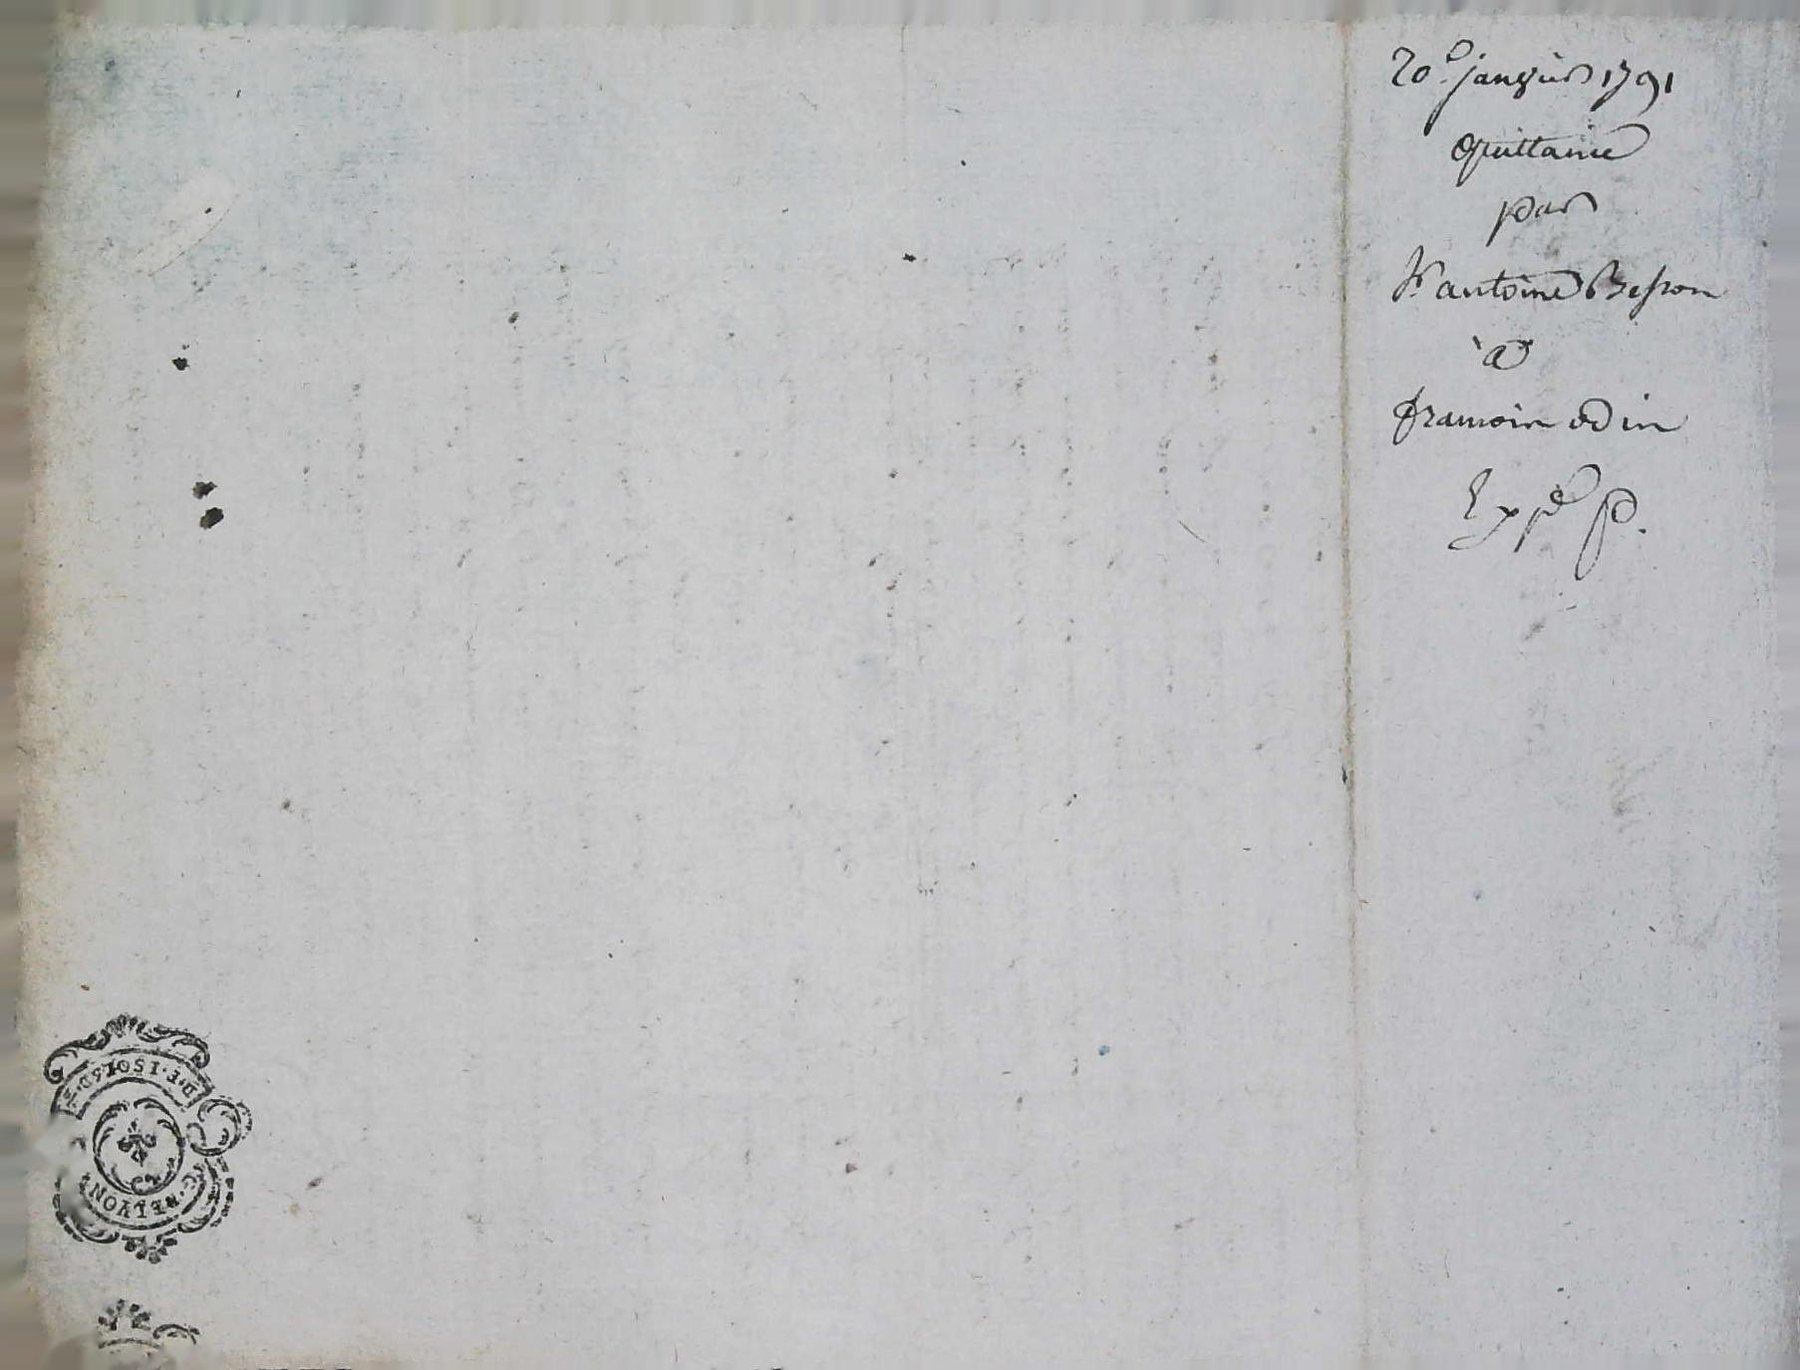 20e janvier 1791
Quittance
par
Sr antoine Besson
à
francois odin
Expé p.
G. DE LYON